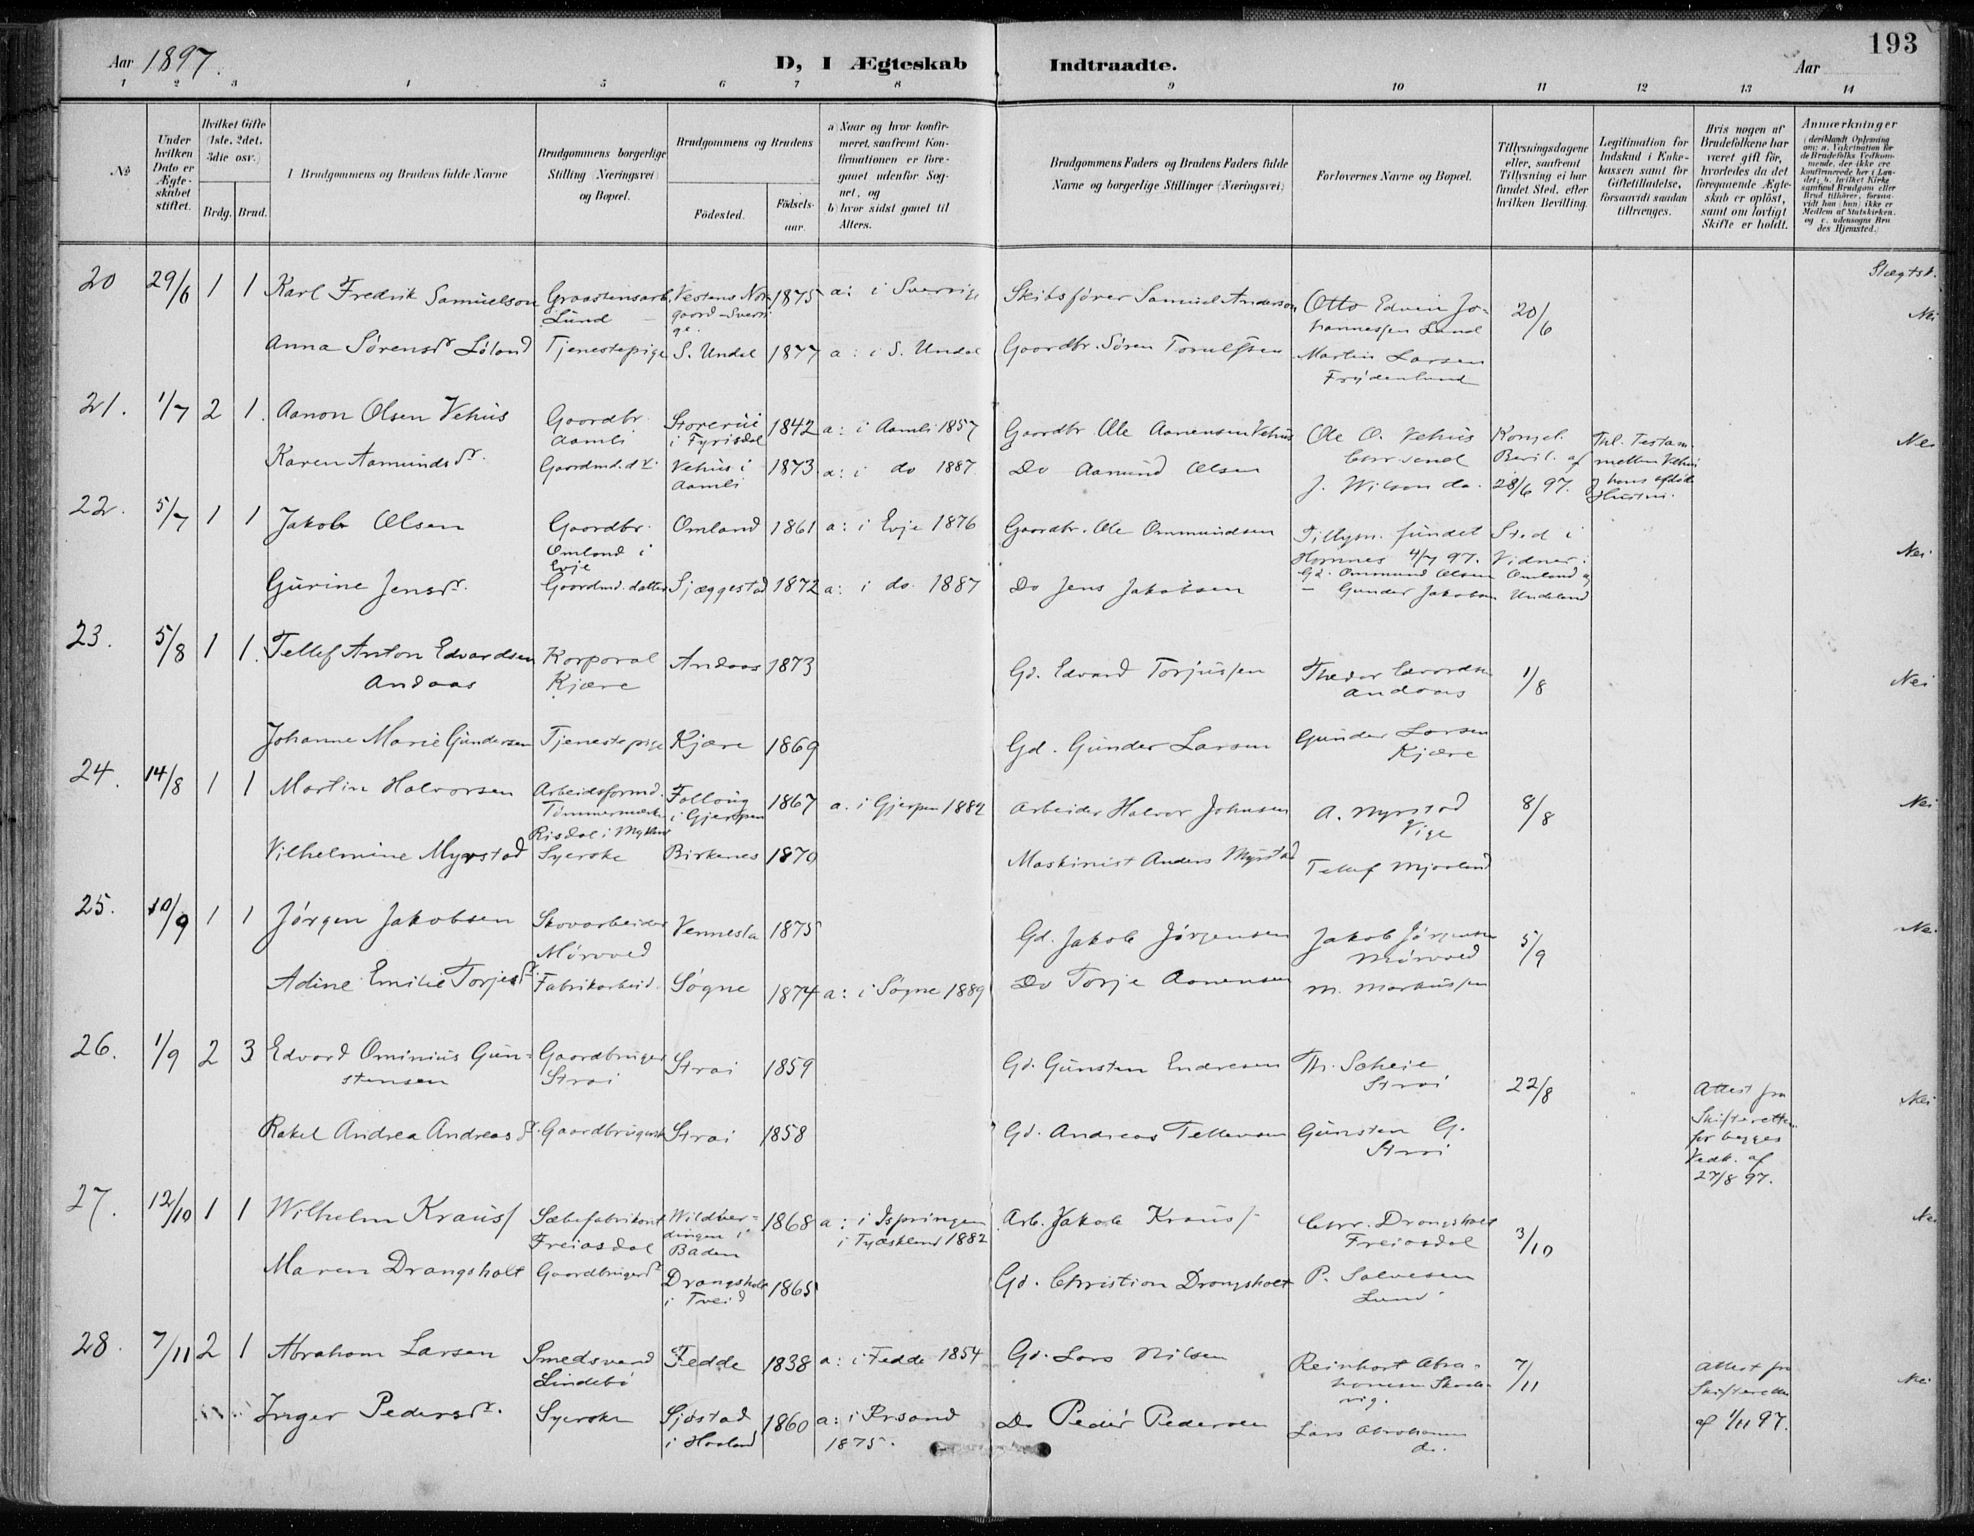 193
Aar 1897.
D, I Ægteskab Indtraadte.
Aar
1 2 3 4 5 6 7 8 9 10 11 12 13 14
No
Under hvilken Dato er Ægteskabet stiftet.
Hvilket Gifte (1ste, 2det, 3die osv.)
Brdg. Brud.
Brudgommens og Brudens fulde Navne
Brudgommens borgerlige Stilling (Næringsvei) og Bopæl.
Brudgommens og Brudens
Fødested.
Fødselsaar.
a) Naar og hvor konfirmeret, saafremt Konfirmationen er foregaaet udenfor Sognet, og
b) hvor sidst gaaet til Alters.
Brudgommens Faders og Brudens Faders fulde Navne og borgerlige Stillinger (Næringsvei)
Forlovernes Navne og Bopæl.
Tillysningsdagene eller, saafremt Tillysning ei har fundet Sted, efter hvilken Bevilling.
Legitimation for Indskud i Enkekassen samt for Giftetilladelse, forsaavidt saadan tiltrænges.
Hvis nogen af Brudefolkene har været gift før, hvorledes da det foregaaende Ægteskab er opløst, samt om lovligt Skifte er holdt.
Anmærkninger
Slægtsk.
20 29/6 1 1 Karl Fredrik Samuelson Graastensarb. Lund 1875 a: i Sverrige Skibsfører Samuel Anderson Otto Edvin Johannessen Lund 20/6 Nei
Anna Sørensdr. Løland Tjenestepige S. Undal 1877 a: i S. Undal Gaardbr. Søren Torulfsen Martin Larsen Frydenlund
21. 1/7 2 1. Aanon Olsen Vehus Gaardbr. Aamli i Fyrisdal 1842 a: i Aamli 1857 Gaardbr. Ole Aanensen Vehus Ole O. Vehus Chrsand Kongel. Bevil. af 28/6 97. Nei
Karen Aamundsdr. Gaardmd. dtr. Vehus i Aamli 1873 a: i do 1887. Do Aamund Olsen J. Wilson do.
22. 5/7 1 1 Jakob Olsen Gaardbr. Omland i Evje Omland 1861 a: i Evje 1876 Gaardbr. Ole Ommundsen Tillysn. fundet Sted i Hornnes 4/7 97. Vidner: Nei
Gurine Jensdr. Gaardmd. datter Sjæggestad 1872 a: i do. 1887 Do Jens Jakobsen Gd. Ommund Olsen Omland og Gunder Jakobsen
23. 5/8 1 1. Tellef Anton Edvardsen Andaas Korporal Kjære Andaas 1873 Gd. Edvard Torjussen Andaas 1/8 Nei
Johanne Marie Gundersen Tjenestepige Kjære 1869 Gd. Gunder Larsen Gunder Larsen Kjære
24. 14/8 1 1 Martin Halvorsen Arbeidsformd. Risdal i Mykland i Gjerpen 1867 a. i Gjerpen 1882 Arbeider Halvor Johnsen A. Myrstad Vige 8/8 Nei
Vilhelmine Myrstad Syerske Birkenes 1870 Maskinist Anders Myrstad Tellef
25. 10/9 1 1 Jørgen Jakobsen Skovarbeider Mørvoed Vennesla 1875 Gd. Jakob Jørgensen Jakob Jørgensen Mørvoed 5/9 Nei
Adine Emilie Torjesdr. Fabrikarbeid. Søgne 1874 a: i Søgne 1889 Do Torje Aanensen M. Markussen
26. 1/9 2 3 Edvard Ominius Gunstensen Gaardbruger Strai Strai 1859 Gd. Gunsten Endresen Th. Scheie Strai 22/8 Attest fra Skifteretten for begges Vedk. af 27/8 97. Nei
Rakel Andrea Andreasdr. Strai 1858 Gd. Andreas Tellevsen Gunsten G. Strai
27. 12/10 1 1 Wilhelm Krauss Sæbefabrikant Freiasdal i Baden 1868 a: i Ispringen i Tydskland 1882 Arb. Jakob Krauss Chr. Drangsholt Freiasdal 3/10 Nei
Maren Drangsholt Gaardbrugerdr. Drangsholt i Tveid 1865 Gd. Christian Drangsholt P. Salvesen Lund
28. 7/11 2 1 Abraham Larsen Smedsvend Lindebø Fedde 1838 a: i Fedde 1854 Gd. Lars Nilsen Reinhart 7/11 Attest fra Skifteretten af 1/11 97. Nei
Inger Pedersdr. Syerske Sjøstad 1860 a: i Krsand 1875. Do Peder Pedersen Lars Abrahamsen do.